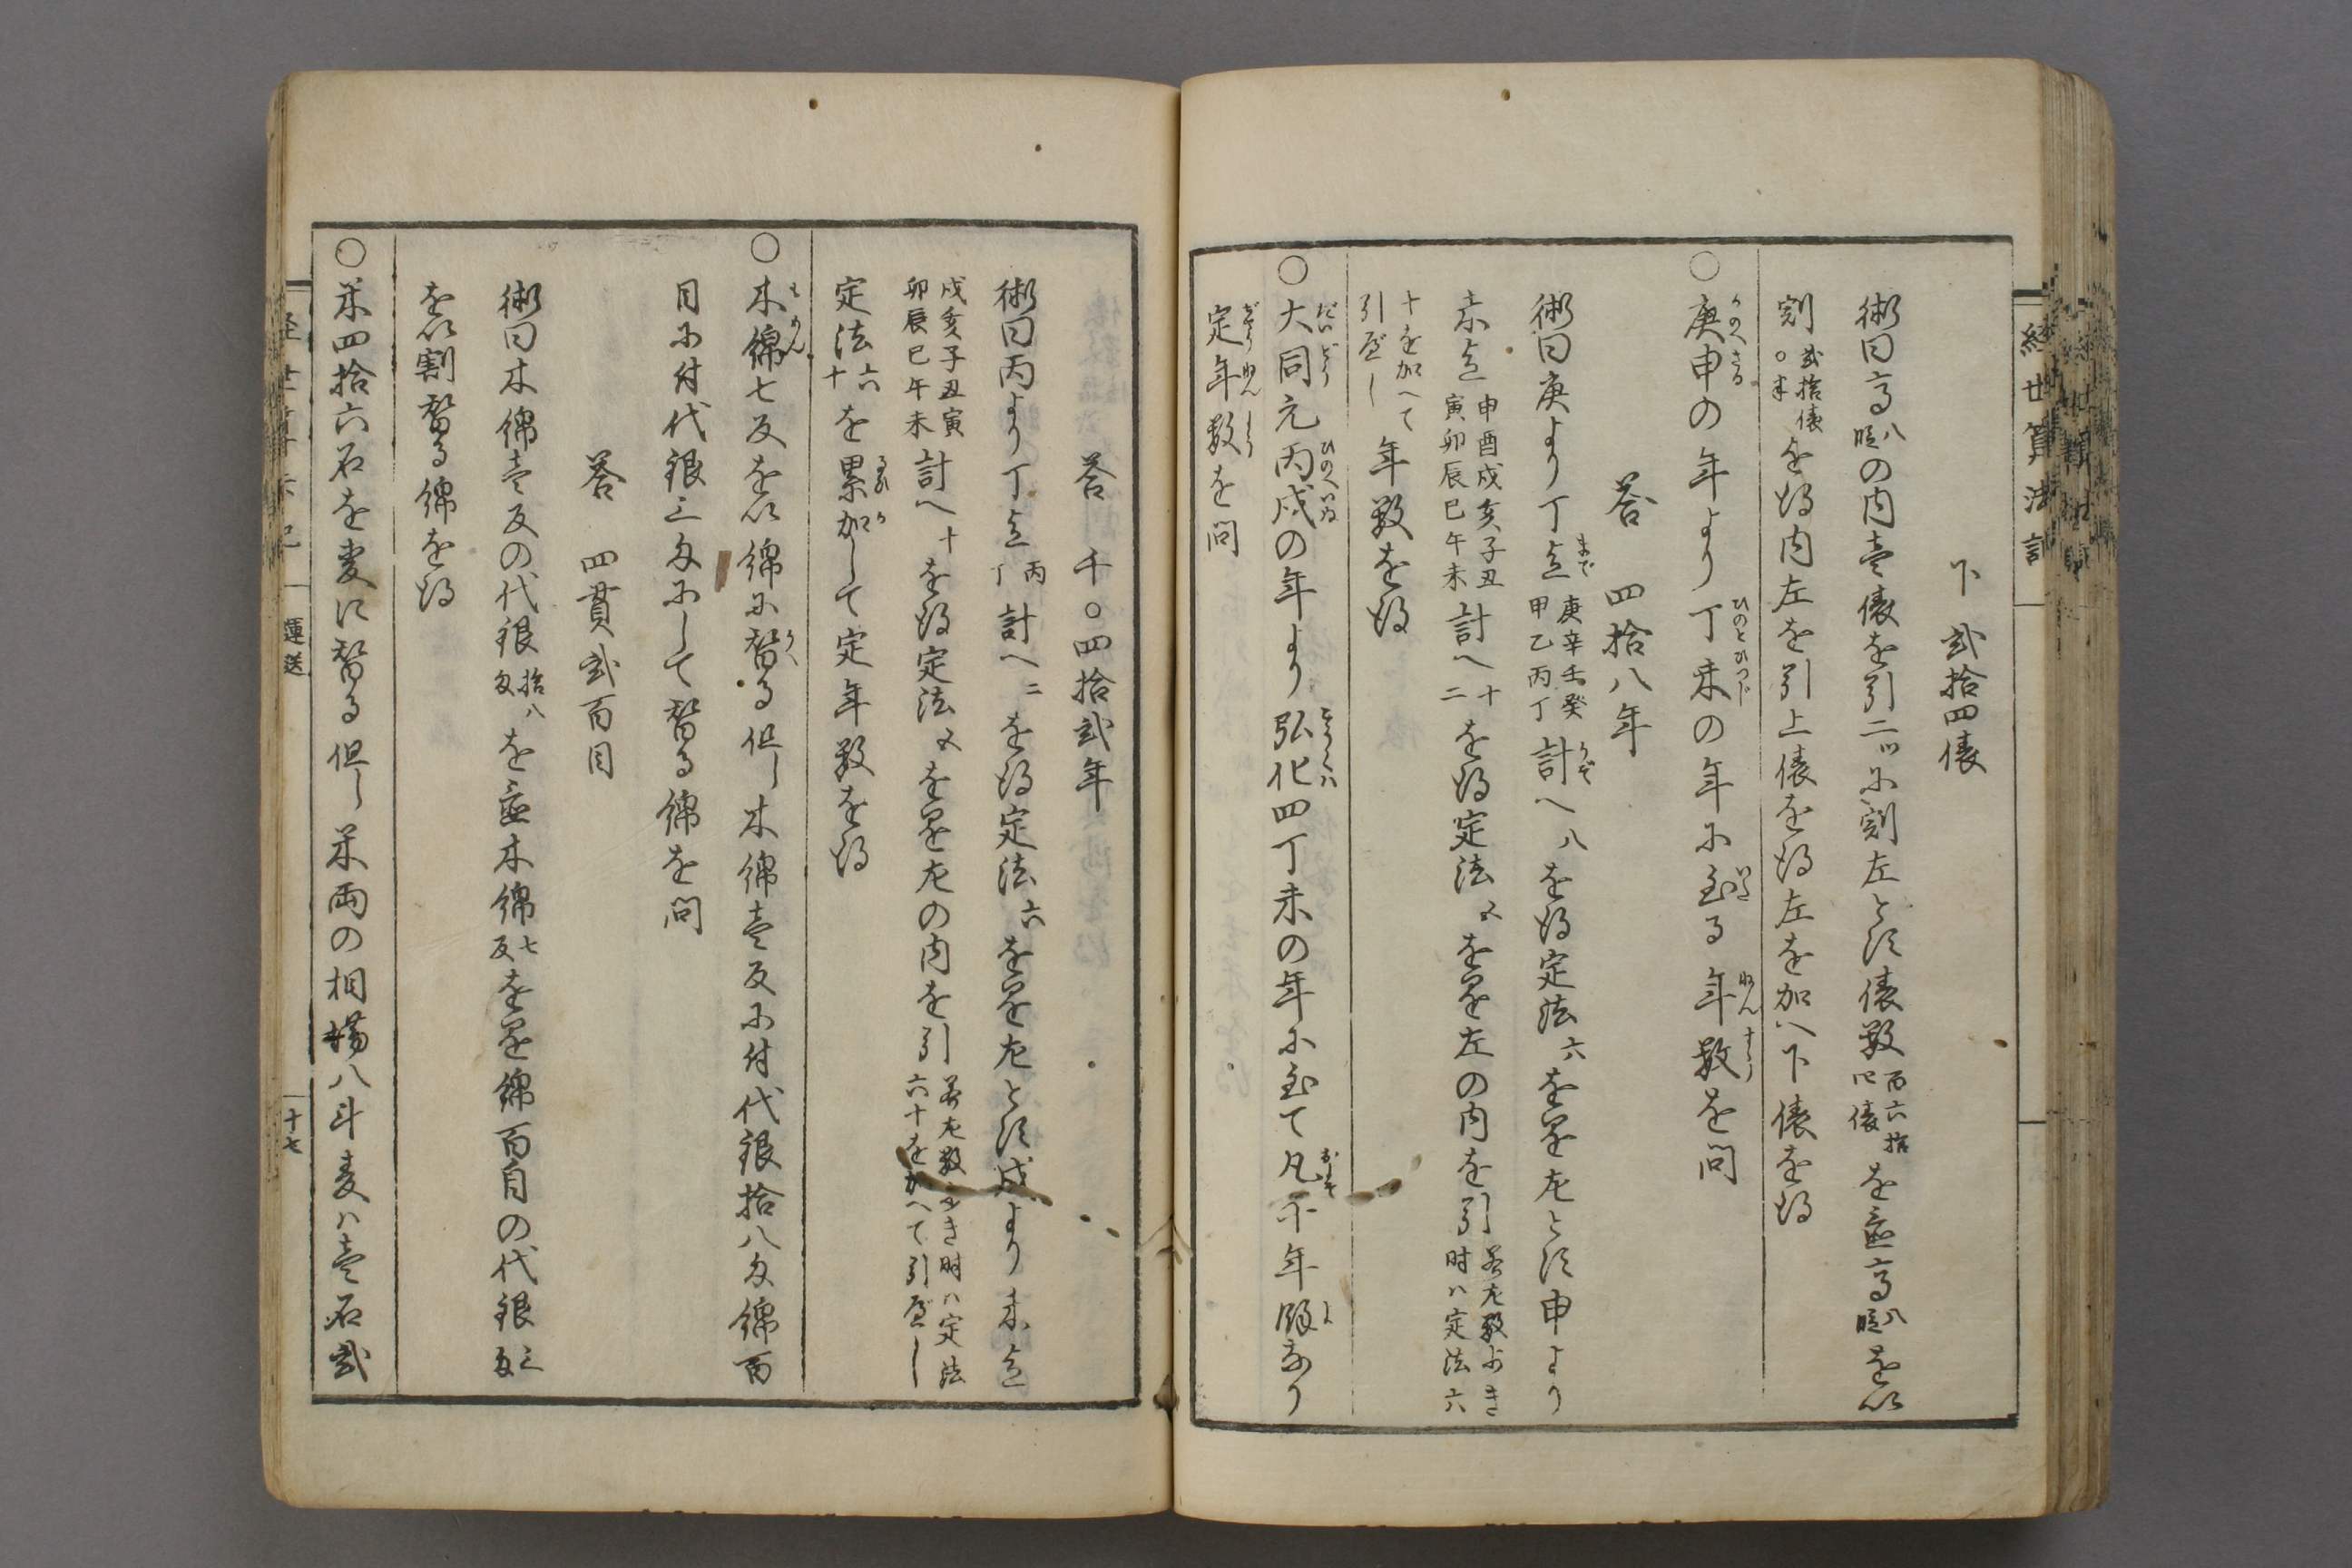 下 弐拾四俵
術曰高八臣の内壱俵を引二ッに割左とす俵数百六拾四俵を置高八臣を以
割弐拾俵〇半を得内左を引上俵を得左を加へ下俵を得
〇庚申の年より丁未の年に至る年数を問
かのへさる ひのとひつじ いた ねんすう
答 四拾八年
術曰庚より丁迄庚辛壬癸甲乙丙丁計へ八を得定法六を置左とす申より
まで かぞ
未迄申酉戌亥子丑寅卯辰巳午未計へ十二を得定法五を置左の内を引若左数少き時ハ定法六
十を加へて引べし年数を得
〇大同元丙戌の年より弘化四丁未の年に至て凡千年餘あり
だいどう ひのへいぬ こうくハ およそ よ
定年数を問
ぢやうねんしう
経世算法記
答 千〇四拾弐年
術曰丙より丁迄丙丁計へ二を得定法六を置左とす戌より未迄
戌亥子丑寅卯辰巳午未計へ十を得定法五を置左の内を引若左数少き時ハ定法六十を加へて引べし
定法六十を累加して定年数を得
るいか
〇木綿七反を以綿に替る但し木綿壱反に付代銀拾八匁綿百
もめん かへ
目に付代銀三匁にして替る綿を問
答 四貫弐百目
術曰木綿壱反の代銀拾八匁を置木綿七反を置綿百目の代銀三匁
を以割替る綿を得
〇米四拾六石を麦に替る但し米両の相場八斗麦ハ壱石弐
運送
十七